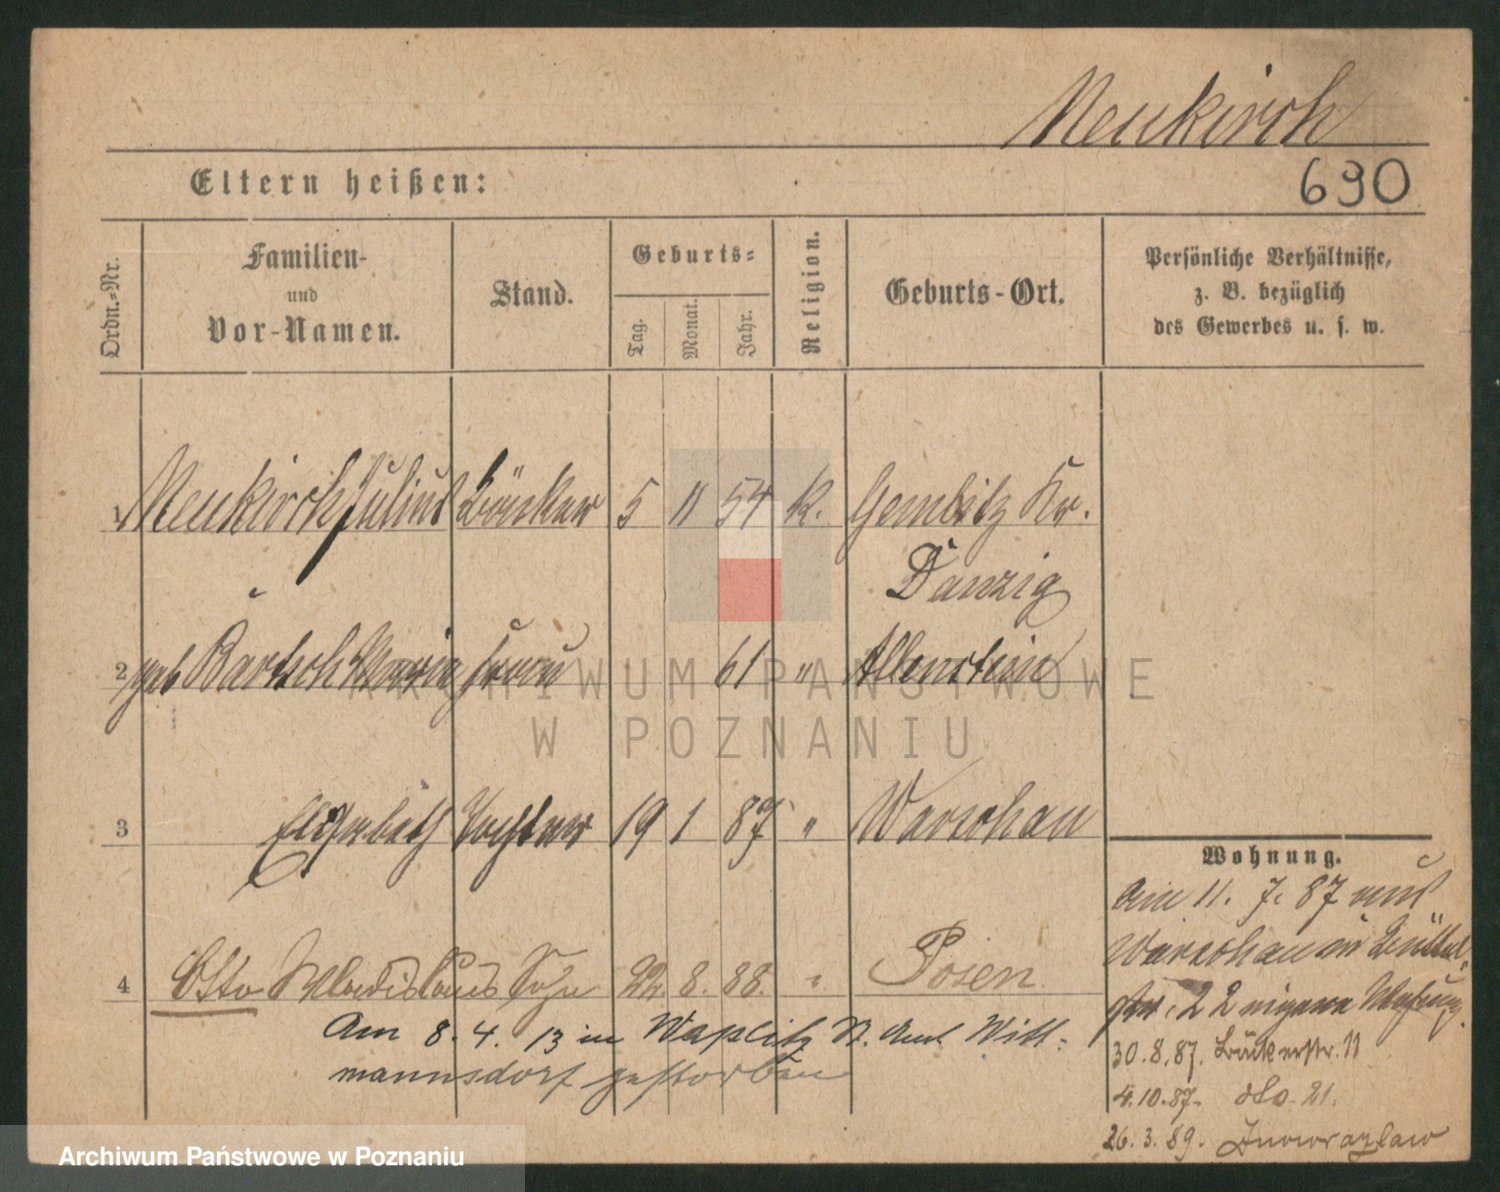 Neukirch
Eltern heißen:
690
Ordn.=Nr.
Familien-
und
Vor-Namen.
Stand.
Geburts=
Tag.
Monat.
Jahr.
Religion.
Geburts-Ort.
Persönliche Verhältnisse,
z. B. bezüglich
des Gewerbes u. s. w.
1 Neukirch Julius 5 11 54 k. Gembitz Kr.
Danzig
2 geb Bartsch Maria Frau 61 " Allenstein
3 Elisabeth Tochter 19 1 87 " Warschau
4 Otto Wladislaus Sohn 22. 8. 88. " Posen
Am 8. 4. 13 in Waplitz St. Amt Witt-
mannsdorf gestorben
Wohnung.
Am 11. 7. 87 aus
Warschau in Büttel-
str. 22 eigene Wohnung.
30.8.87. Büttelstr. 11
4.10.87. dto. 21.
26.3.89. Inowrazlaw
ARCHIWUM PAŃSTWOWE
W POZNANIU
Archiwum Państwowe w Poznaniu